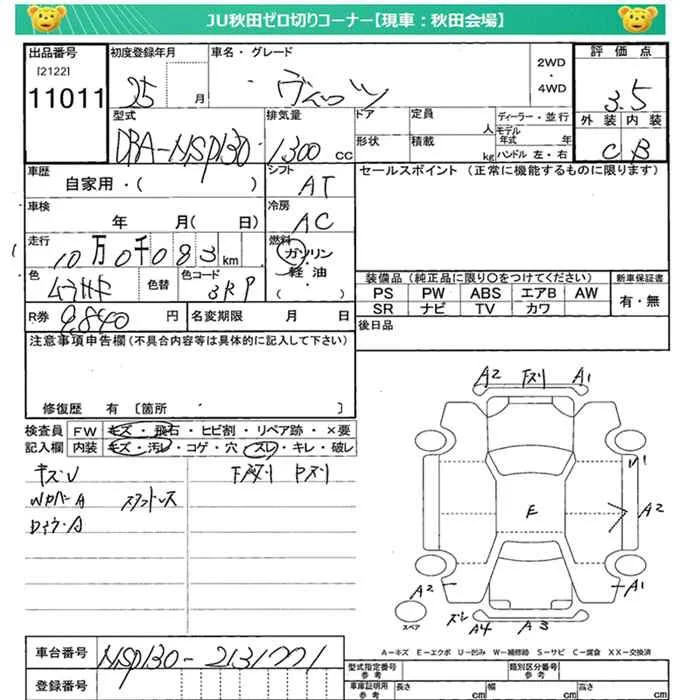 JU秋田ゼロ切りコーナー【現車：秋田会場】
出品番号
[2122]
11011
初度登録年月
25 月
車名・グレード
ヴィッツ
2WD
・
4WD
評価点
3.5
外装 内装
C B
型式
DBA-NSP130
排気量
1,300 cc
ドア
定員
人
形状
積載
kg
ディーラー・並行
モデル
年式
年
ハンドル 左・右
車歴
自家用・( )
シフト
AT
セールスポイント (正常に機能するものに限ります)
車検
年 月( 日)
冷房
AC
走行
10万0千083 km
燃料
ガソリン
・
軽油
( )
色
色替
色コード
3RP
装備品 (純正品に限り○をつけてください)
PS PW ABS エアB AW
SR ナビ TV カワ
新車保証書
有・無
R券
9,840 円
名変期限 月 日
後日品
注意事項申告欄(不具合内容等は具体的に記入して下さい)
修復歴 有 [箇所 ]
検査員
記入欄
FW キズ・飛石・ヒビ割・リペア跡・×要
内装 キズ・汚レ・コゲ・穴 スレ・キレ・破レ
キズU
下廻スリ
WRバーA
A2 下スリ A1
U1
E
A2
A2
A1
スレ
A4
A3
スペア
A－キズ E－エクボ U－凹み W－補修跡 S－サビ C－腐食 XX－交換済
車台番号
NSP130-2131771
登録番号
型式指定番号
参考
類別区分番号
参考
車庫証明用
参考
長さ cm
幅 cm
高さ cm